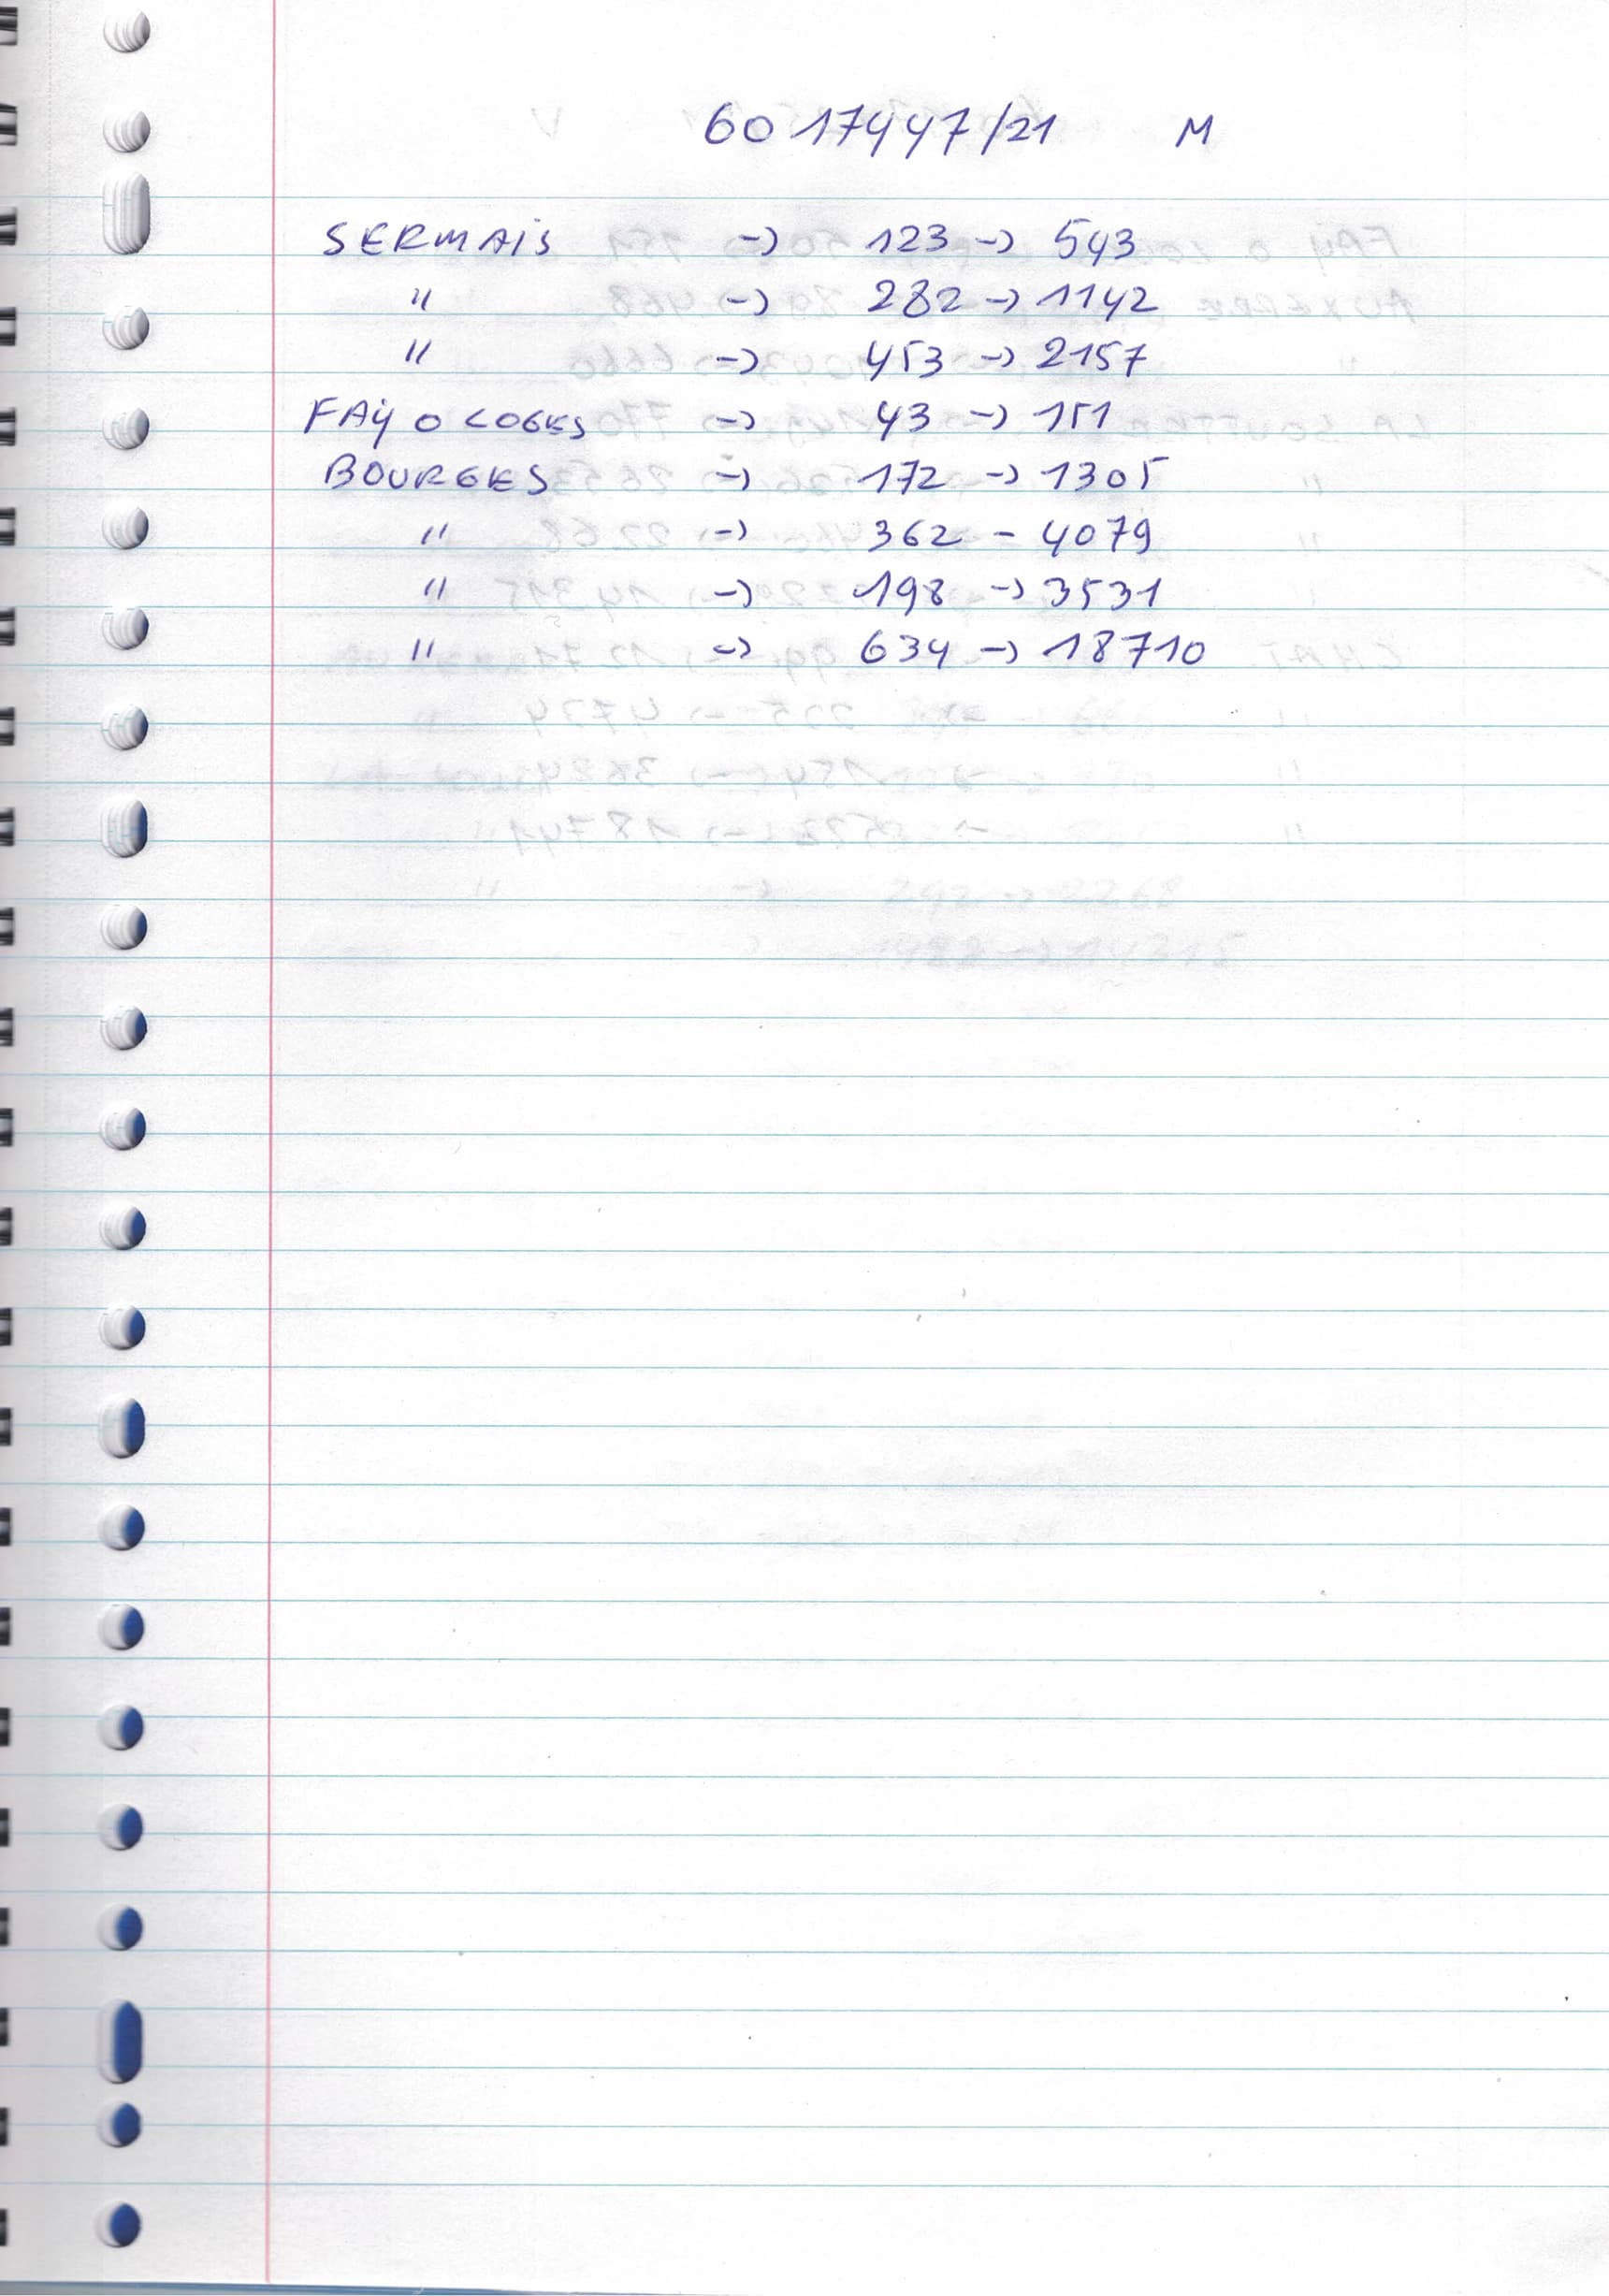 6017447/21 M
SERMAIS -> 123 -> 543
" -> 282 -> 1142
" -> 453 -> 2157
FAY O LOGES -> 43 -> 151
BOURGES -> 172 -> 1305
" -> 362 - 4079
" -> 198 -> 3531
" -> 634 -> 18710